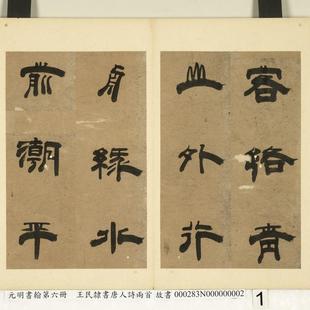 客路青
山外行
舟綠水
前潮平
元明書翰第六冊　王民隸書唐人詩兩首 故書 000283N000000002
1